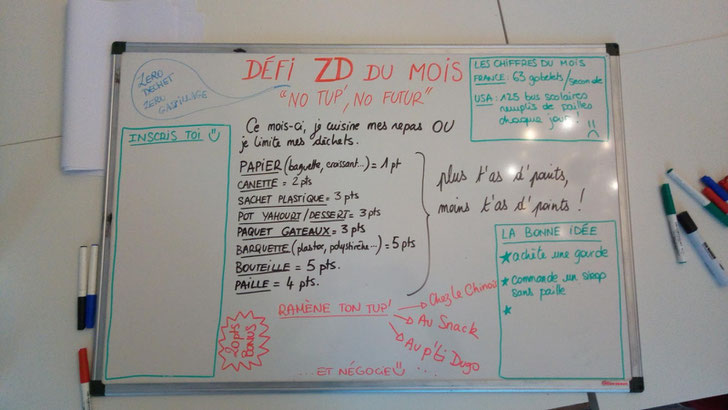 ZÉRO
DÉCHET
ZÉRO
GASPILLAGE
DÉFI ZD DU MOIS
"NO TUP', NO FUTUR"
LES CHIFFRES DU MOIS
FRANCE: 63 gobelets/seconde
USA: 125 bus scolaires
remplis de pailles
chaque jour!
INSCRIS TOI
Ce mois-ci, je cuisine mes repas OU
je limite mes déchets.
PAPIER (baguette, croissant...) = 1 pt
CANETTE = 2 pts
SACHET PLASTIQUE = 3 pts
POT YAHOURT/DESSERT = 3 pts
PAQUET GATEAUX = 3 pts
BARQUETTE (plastoc, polystirène...) = 5 pts
BOUTEILLE = 5 pts.
PAILLE = 4 pts.
plus t'as d'points,
moins t'as d'points!
LA BONNE IDÉE
achète une gourde
Commande un sirop
sans paille
RAMÈNE TON TUP'
Chez Le Chinois
Au Snack
Au p'ti Dugo
20 pts
BONUS
... ET NÉGOCIE ...